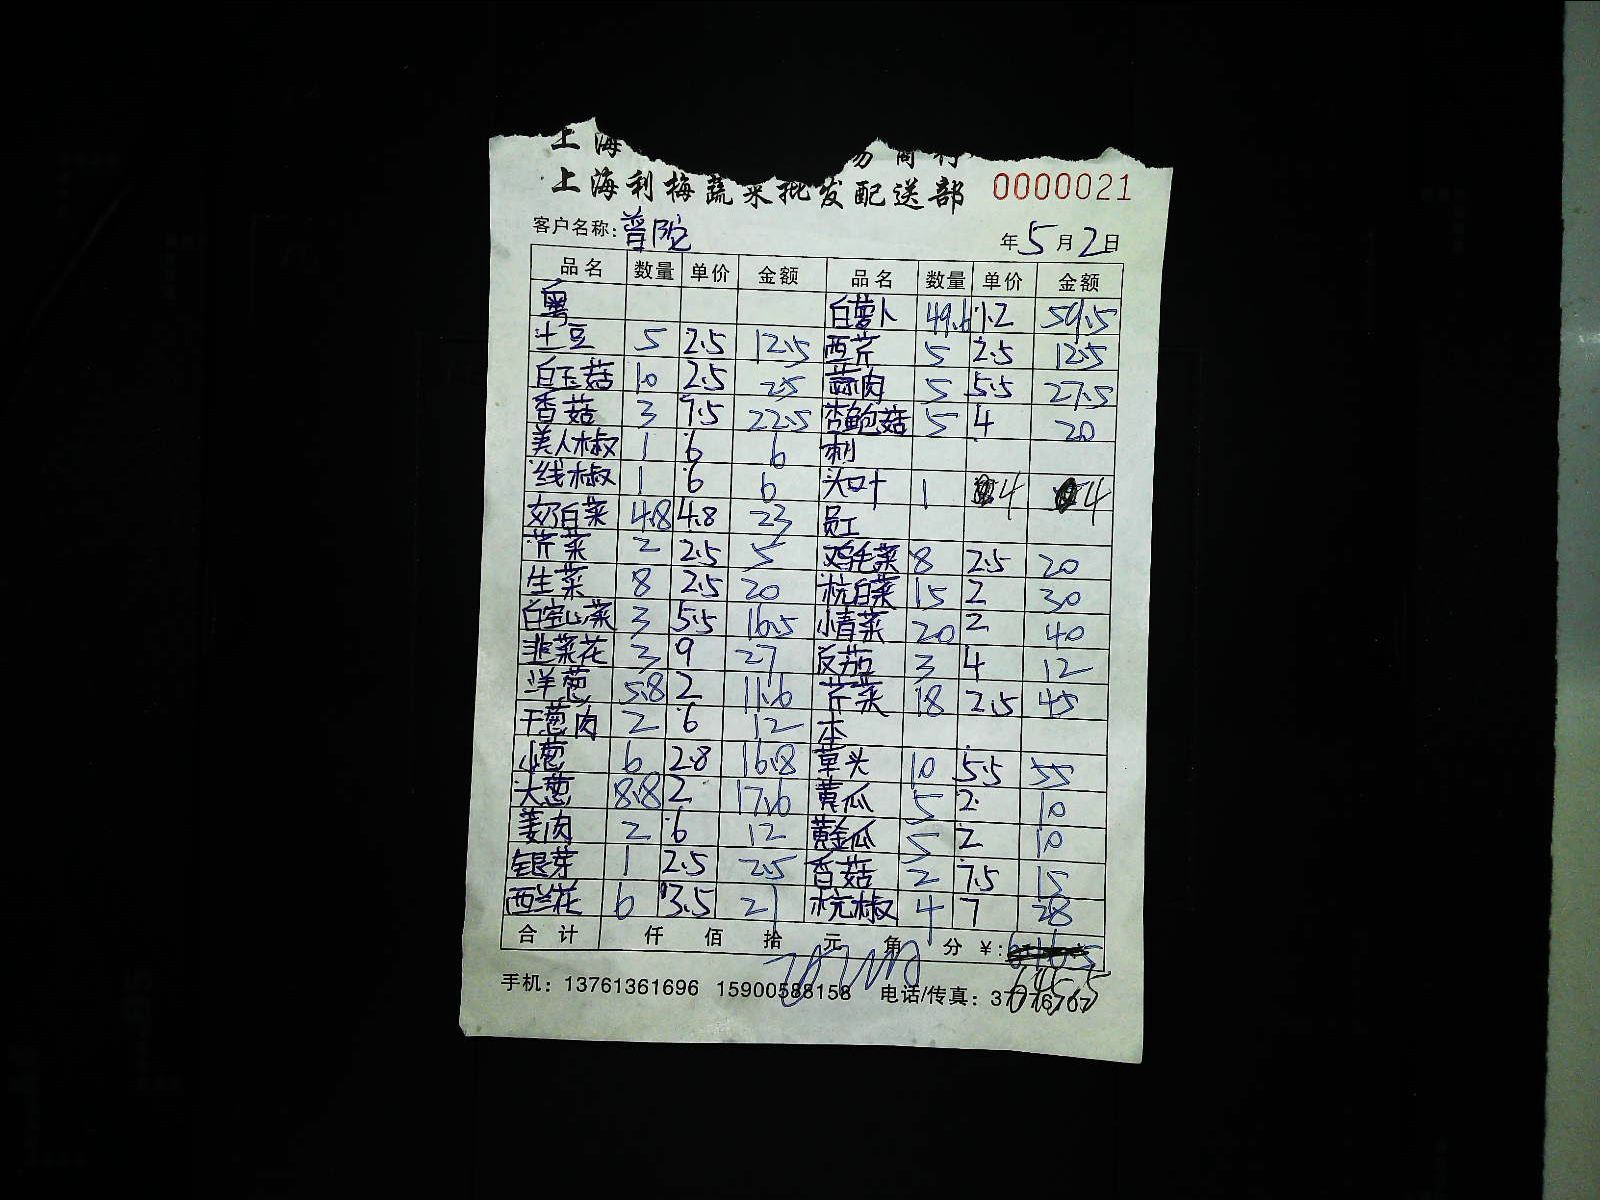 上海
易商行
上海利梅蔬菜批发配送部 0000021
客户名称: 普陀 年 5 月 2 日
品名 数量 单价 金额 品名 数量 单价 金额
粤 白萝卜 49.6 1.2 59.5
土豆 5 2.5 12.5 西芹 5 2.5 12.5
白玉菇 10 2.5 25 蒜肉 5 5.5 27.5
香菇 3 7.5 22.5 杏鲍菇 5 4 20
美人椒 1 6 6 刺
线椒 1 6 6 头叶 1 4 4
奶白菜 4.8 4.8 23 员工
芹菜 2 2.5 5 鸡毛菜 8 2.5 20
生菜 8 2.5 20 杭白菜 15 2 30
白空心菜 3 5.5 16.5 小青菜 20 2 40
韭菜花 3 9 27 反茄 3 4 12
洋葱 5.8 2 11.6 芹菜 18 2.5 45
干葱肉 2 6 12 本
小葱 6 2.8 16.8 草头 10 5.5 55
大葱 8.8 2 17.6 黄瓜 5 2 10
姜肉 2 6 12 黄金瓜 5 2 10
银芽 1 2.5 2.5 香菇 2 7.5 15
西兰花 6 3.5 21 杭椒 4 7 28
合计 仟 佰 拾 元 角 分 ¥:
645.5
手机: 13761361696 15900588158 电话/传真: 37776767